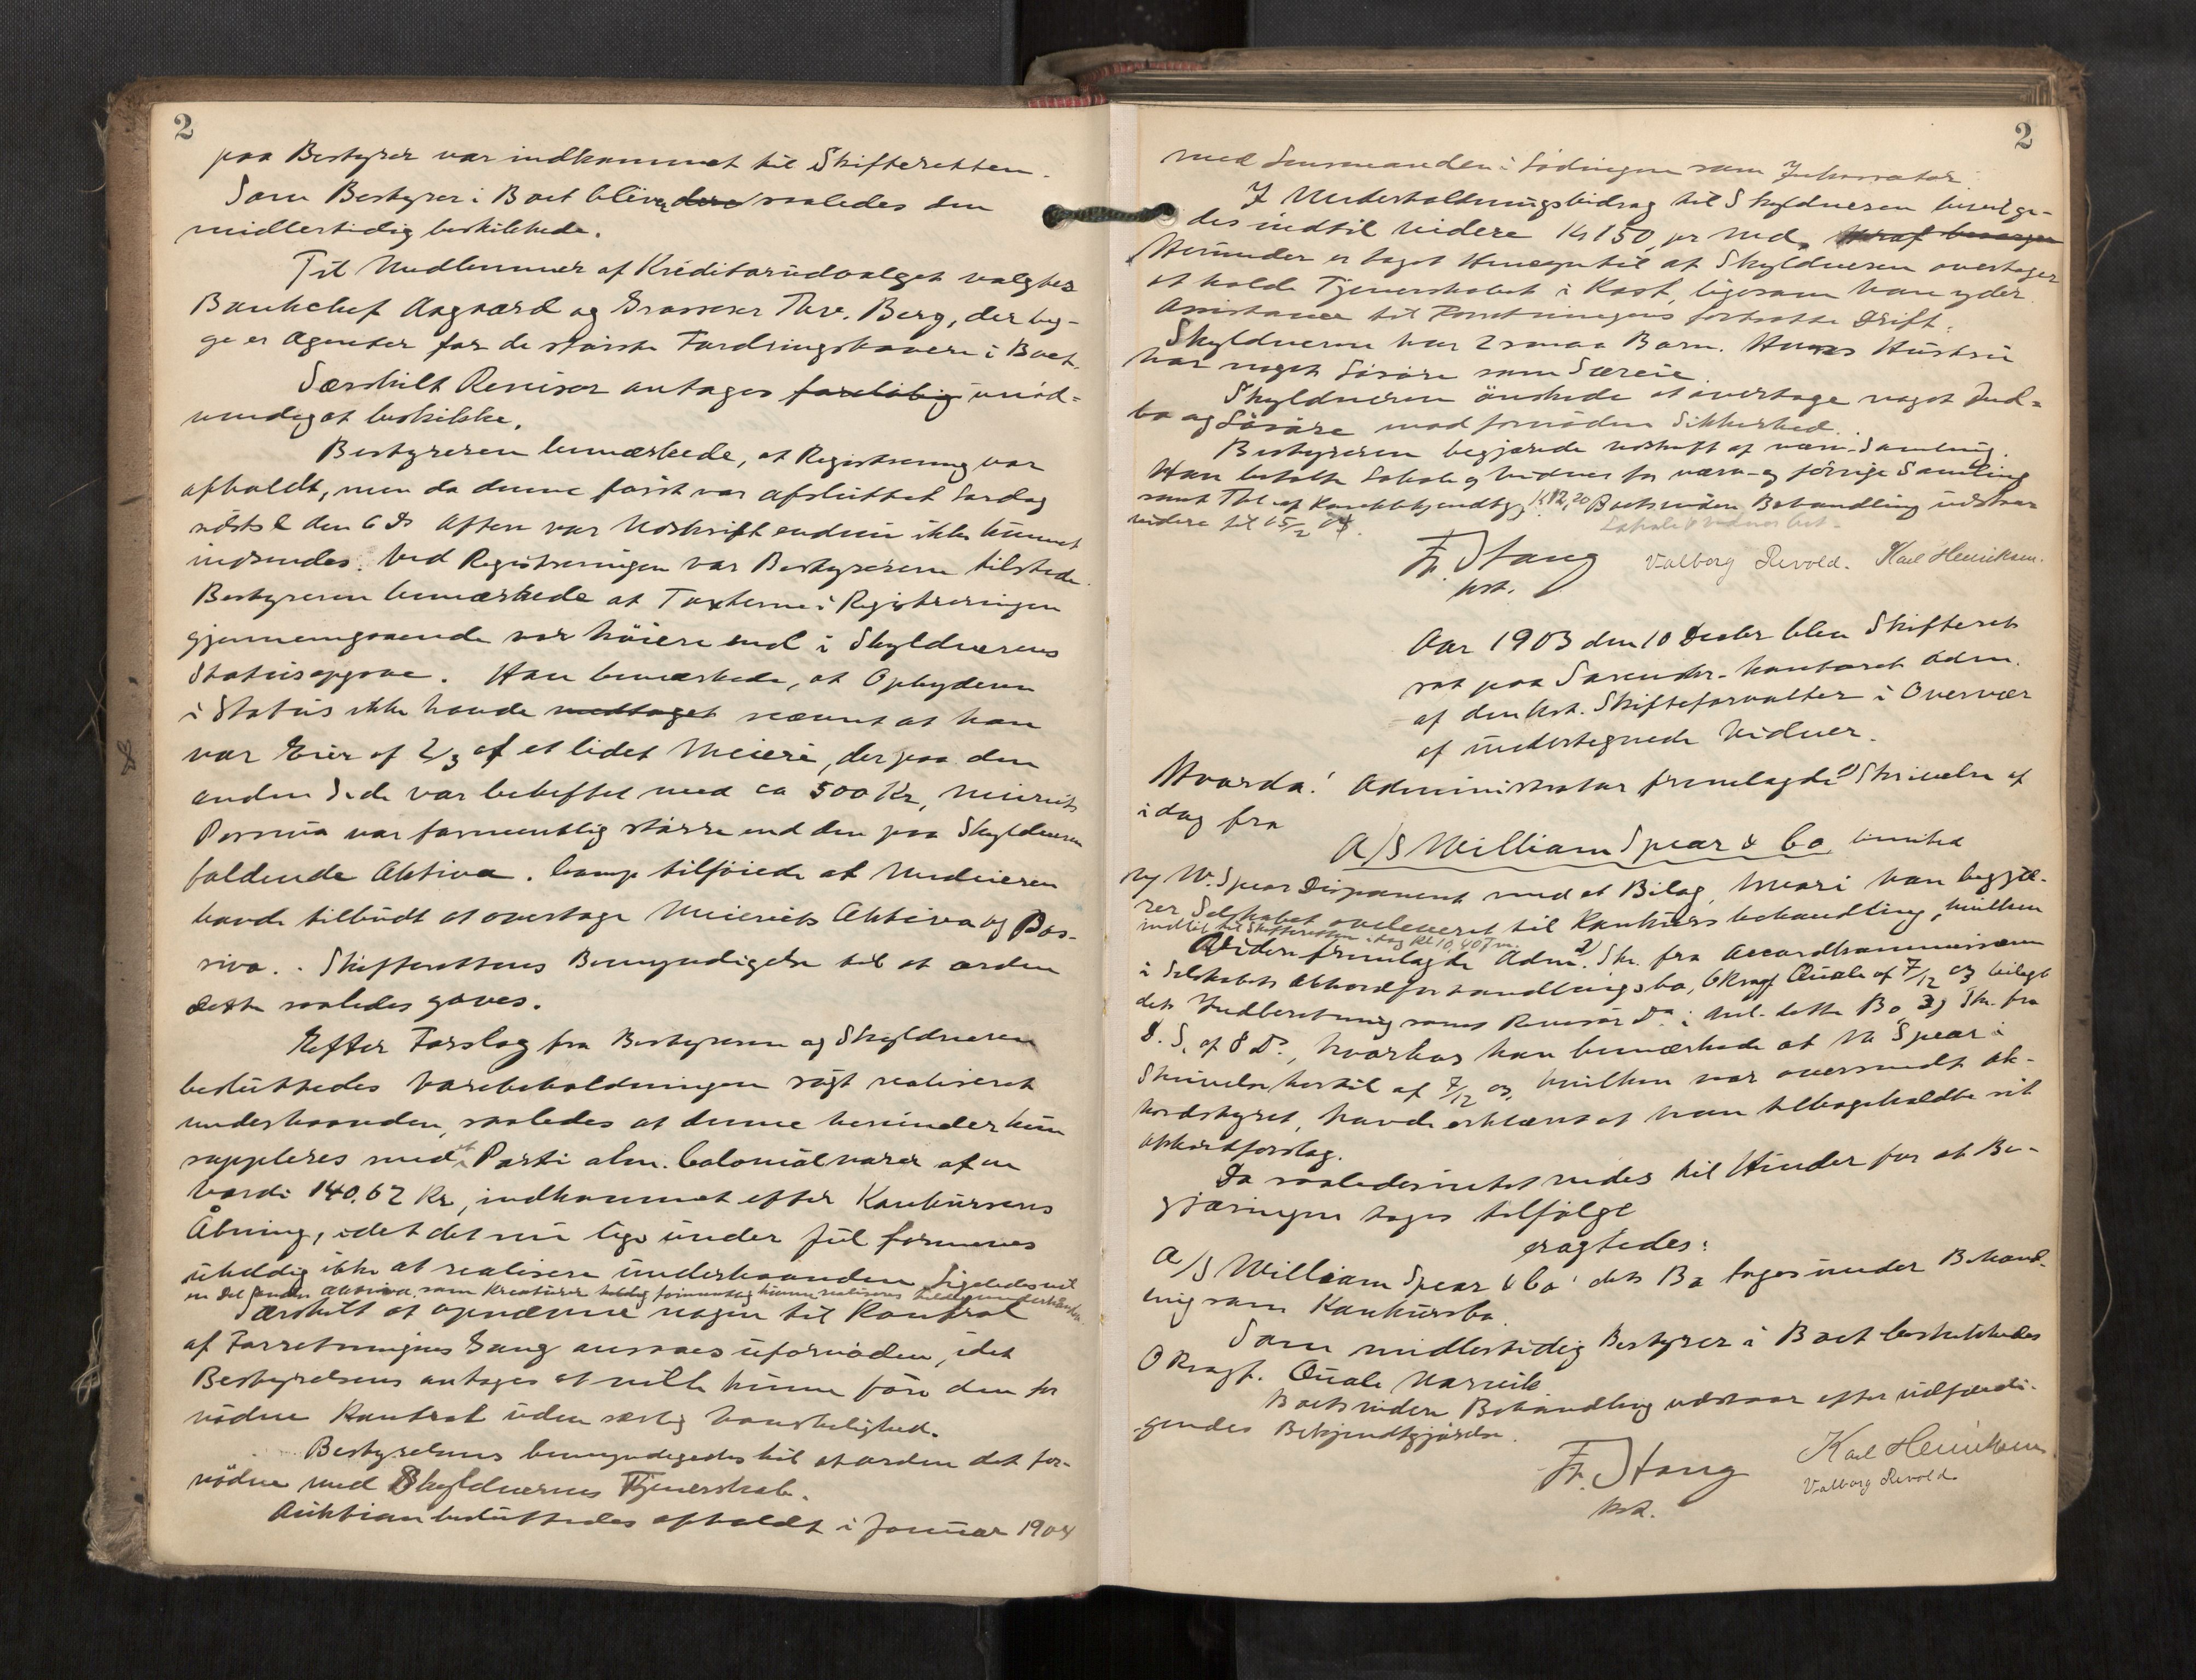 2
paa Bestyrer var indkommet til Skifteretten.
Som Bestyrer i Boet blive saaledes den
midlertidig beskikkede.
Til Medlemmer af Kreditorudvalget valgtes
Bankchef Aagaard og Grosserer Thv. Berg, der beg-
ge er Agenter for de største Fordringshavere i Boet.
Særskilt Revisor antages foreløbig unød-
vendig at beskikke.
Bestyreren bemærkede, at Registrering var
afholdt, men da denne først var afsluttet Lørdag
den 6 Ds Aften var Udskrift endnu ikke kunnet
indsendes. Ved Registreringen var Bestyreren tilstede.
Bestyreren bemærkede at Taxterne i Registreringen
gjennemgaaende var höiere end i Skyldnerens
Statusopgave. Han bemærkede, at Opbyderen
i Status ikke havde medtaget nævnt at han
var Eier af 2/3 af et lidet Meieri, der paa den
anden Side var beheftet med ca 500 Kr, Meieriets
Passiva var formentlig større end den paa Skyldneren
faldende Aktiva. Comp. tilføiede at Medeieren
havde tilbudt at overtage Meieriets Aktiva og Pas-
siva. Skifterettens Bemyndigelse til at ordne
dette saaledes gaves.
Efter Forslag fra Bestyreren og Skyldneren
besluttedes Varebeholdningen søgt realiseret
underhaanden, saaledes at denne herunder kun
suppleres med et Parti alm. Colonialvarer af en
Værdi 140.62 Kr, indkommet efter Konkursens
Åbning, idet det nu lige under Jul formenes
uheldig ikke at realisere underhaanden Ligeledes vil
en Del anden Aktiva, som Kreaturer heldig formentlig kunne realiseres underhaanden.
Særskilt at opnævne nogen til Kontrol
af Forretningens Gang ansaaes ufornöden, idet
Bestyrelsens antages at ville kunne före den for
nödne Kontrol uden særlig Vanskelighed.
Bestyrelsens bemyndigedes til at ordne det for-
nödne med Skyldnerens Tjenerskab.
Auktion besluttedes afholdt i Januar 1904
2
med Lensmanden i Lödingen som Inkassator.
I Underholdningsbidrag til Skyldneren bevilge-
des indtil videre Kr 150 pr Md. heraf besørger
Herunder er taget Hensyn til at Skyldneren overtager
at holde Tjenerskabet i Kost, ligesom han yder
Assistance til Forretningens fortsatte Drift.
Skyldneren har 2 smaa Barn. Hans Hustru
har noget Lösöre som Særeie.
Skyldneren önskede at overtage noget Ind-
bo og Lösöre mod fornöden Sikkerhed.
Bestyreren begjærede Udskrift af nærv. Samling.
Han betalte Lokale og Vidner for nærv. og förrige Samling
samt Kr 12,20 Boets videre Behandling udstaar
videre til 15/2 04.
Lokale & Vidner bet.
Fr. Stang Valborg Revold. Karl Henriksen.
kst.
Aar 1903 den 10 Decbr blev Skifteret
sat paa Sorenskr.-kontoret adm.
af den kst. Skifteforvalter i Overvær
af undertegnede Vidner.
Hvorda! Administrator fremlagde 1) Skrivelse af
idag fra
A/S William Spear & Co Limited
W. Spear Disponent med et Bilag, hvori han begjæ-
rer Selskabet overleveret til Konkursbehandling, hvilken
indkl. til Skifteretten idag Kl 10,40 Fm.
Videre fremlagde Adm. 2) Skr. fra Accordkommissæren
i Selskabets Akkordforhandlingsbo, OKragf. Quale af 7/12 03 bilagt
dets Indberetning samt Revisor Do i Anl. dette Bo, 3) Skr. fra
d. S. af 8 D., hvorhos han bemærkede at W. Spear i
Skrivelse hertil af 7/12 03, hvilken var oversendt Ak-
kordstyret, havde erklært at han tilbageholdte sit
Akkordforslag.
Da saaledes intet vides til Hinder for at Be-
gjæringen tages tilfölge
eragtedes:
A/S William Spear & Co' dets Bo tages under Behand-
ling som Konkursbo.
Som midlertidig Bestyrer i Boet beskikkedes
OKragf. Quale Narvik
Boets videre Behandling udstaar efter udfærdi-
gendes Bekjendtgjörelse.
Fr. Stang Karl Henriksen
kst. Valborg Revold.